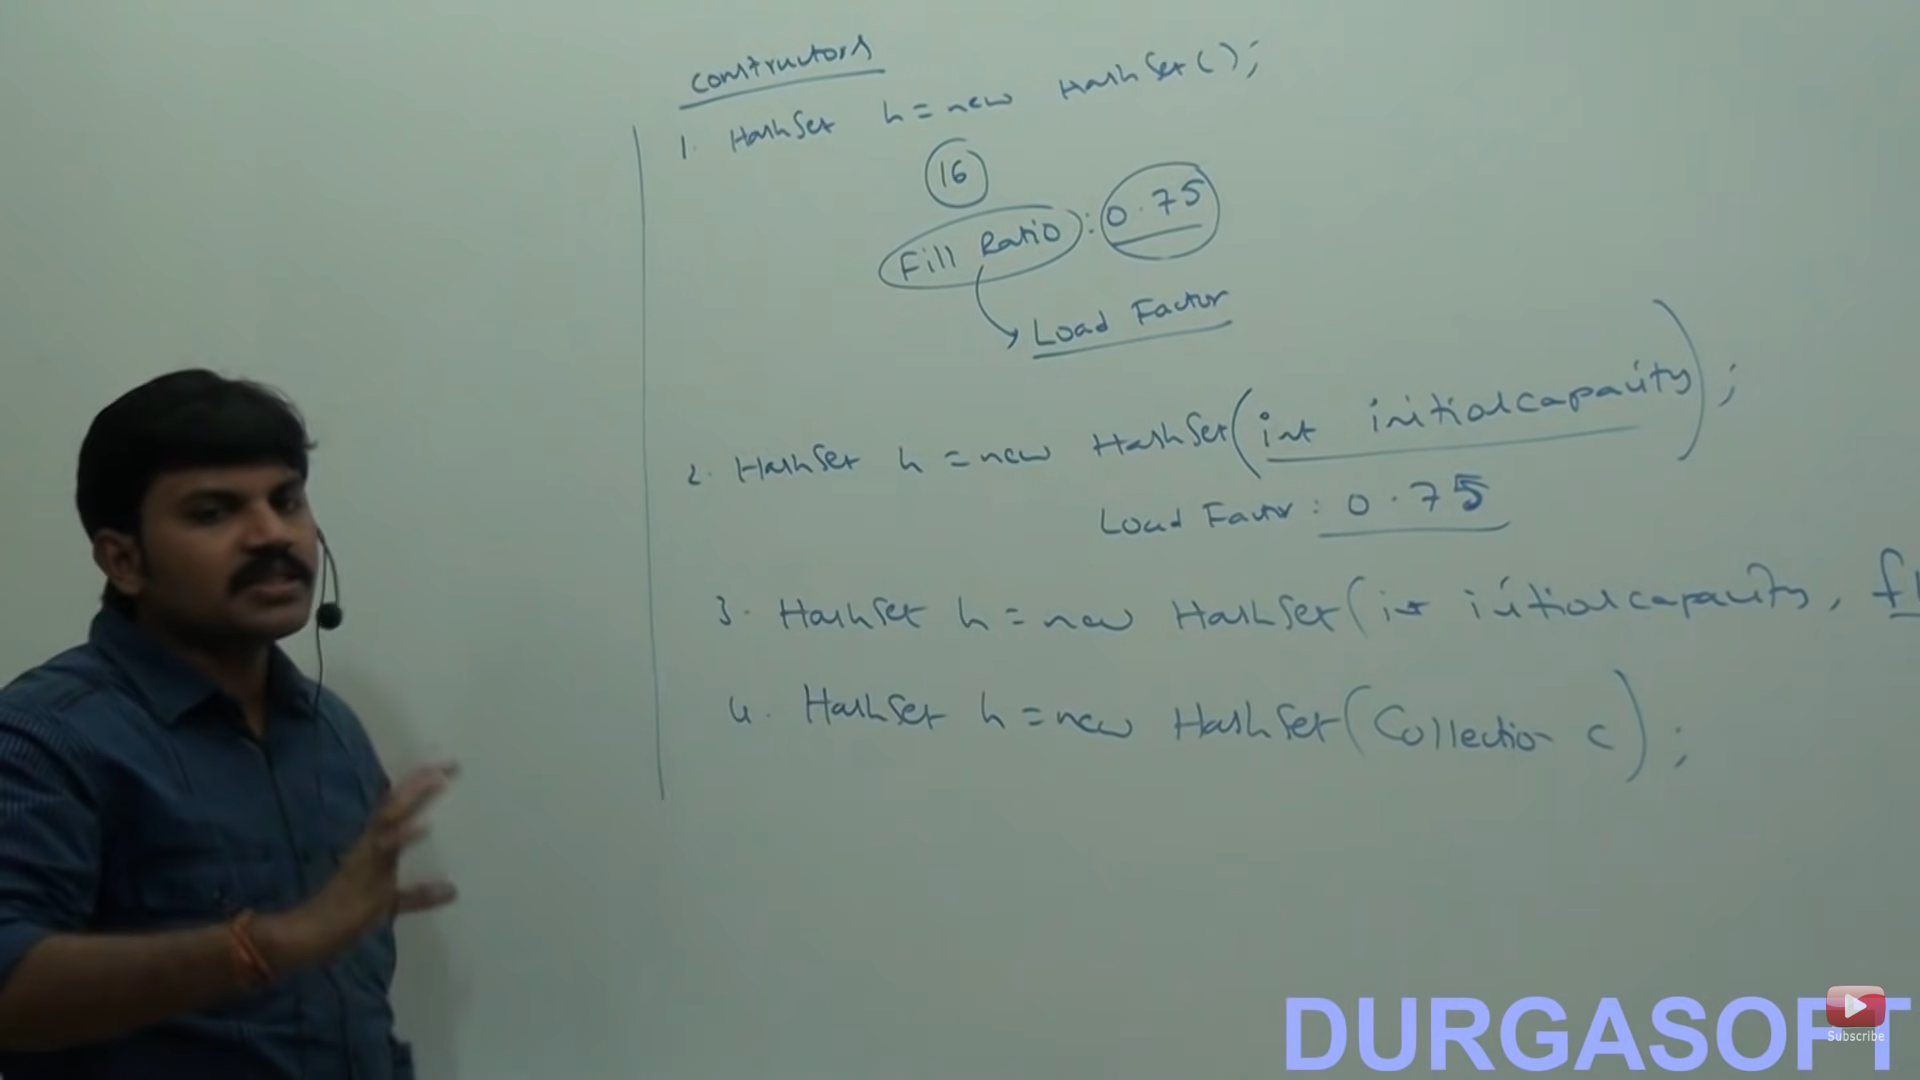 constructors
1. HashSet h = new HashSet();
16
Fill Ratio : 0.75
Load Factor
2. HashSet h = new HashSet(int initialcapacity);
Load Factor : 0.75
3. HashSet h = new HashSet(int initialcapacity, fl
4. HashSet h = new HashSet(Collection c);
DURGASOFT
Subscribe